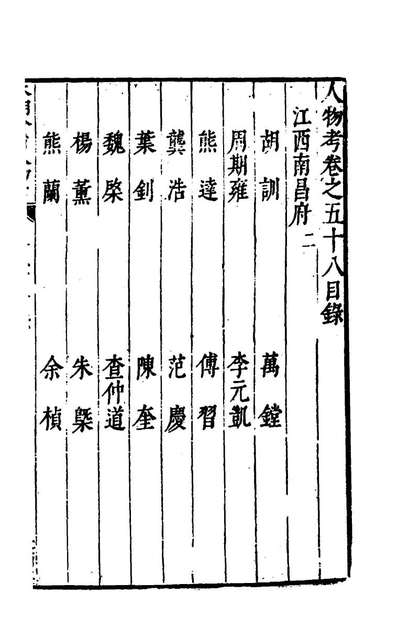 人物考卷之五十八目錄
江西南昌府二
胡訓 萬鏜
周期雍 李元凱
熊達 傅習
龔浩 范慶
葉釗 陳奎
魏棨 查仲道
楊薰 朱槩
熊蘭 余楨